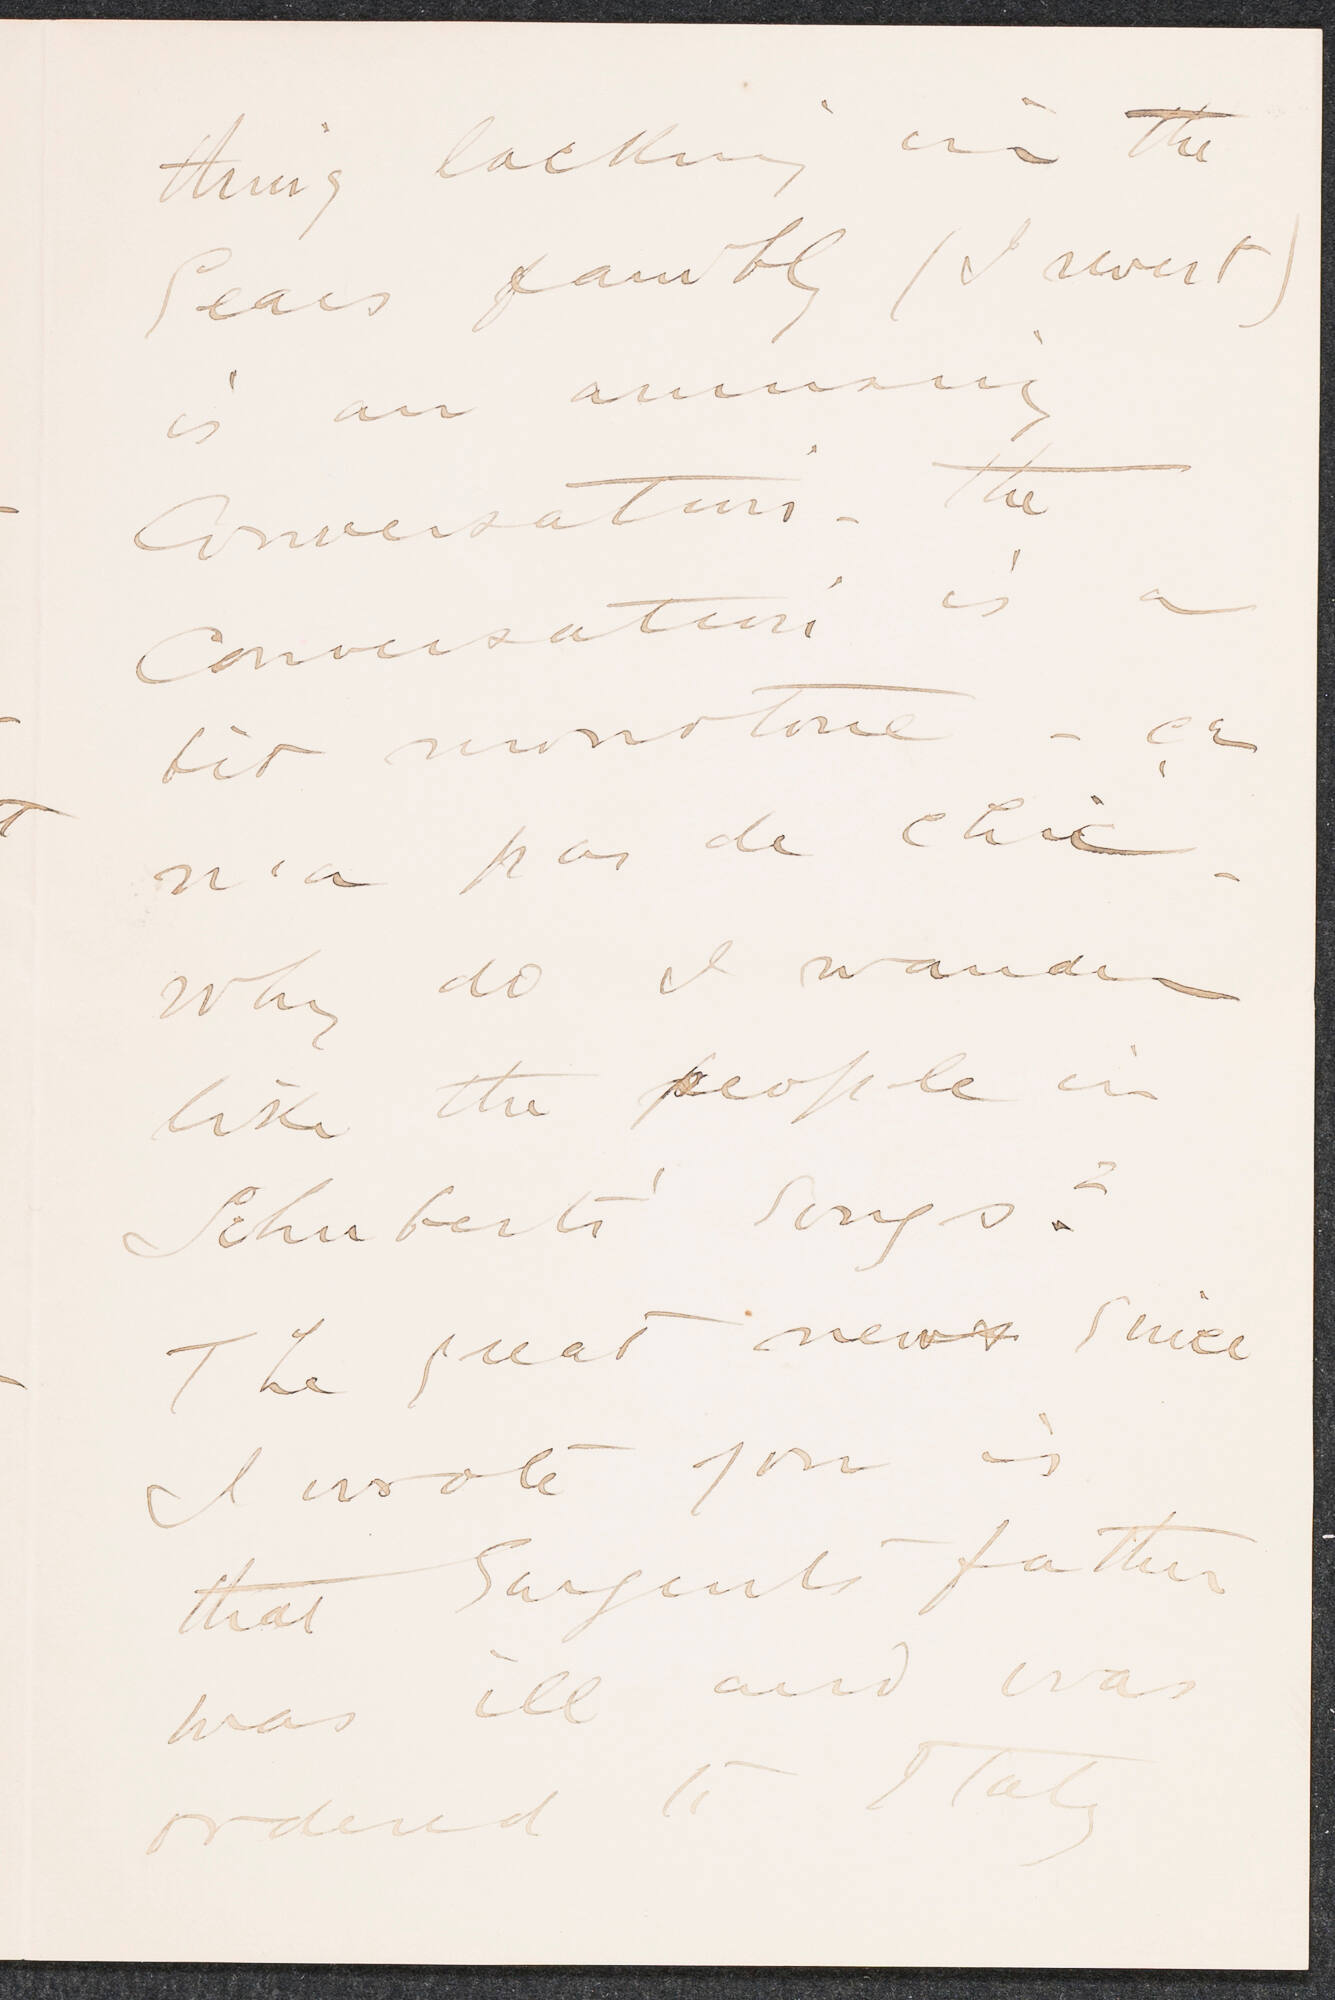 thing lacking in the
Sears family (I revert)
is an amusing
Conversation - the
Conversation is a
bit monotone - ça
n'a pas de chic -
Why do I wander
like the people in
Schubert's songs?
The great news since
I wrote you is
that Sargent's father
was ill and was
ordered to Italy